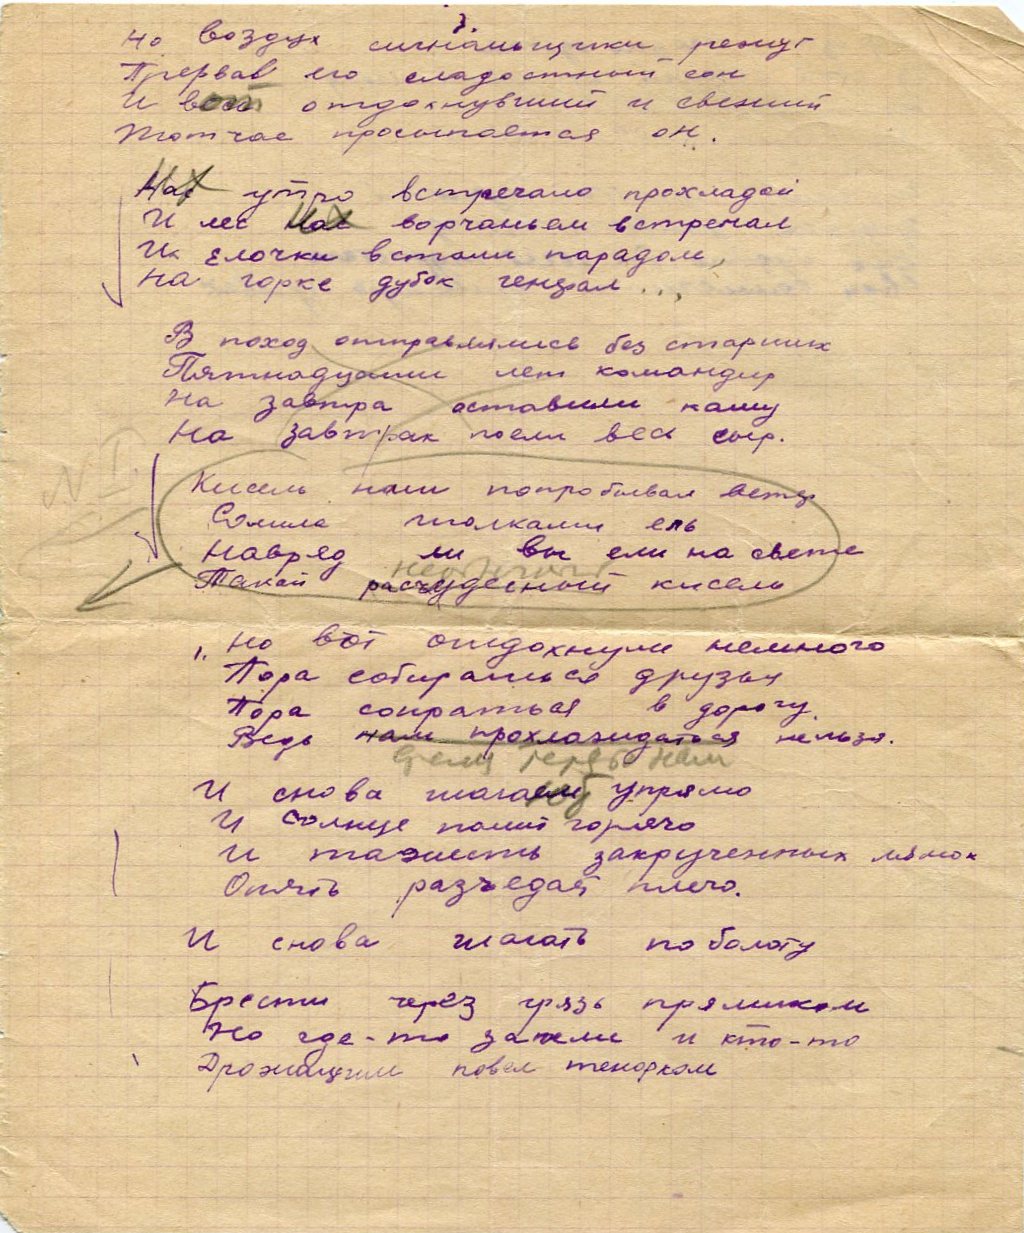 3.
Но воздух сигнальщики режут
Прервав его сладостный сон
И вот отдохнувший и свежий
Тотчас просыпается он.
Их утро встречало прохладой
И лес их ворчаньем встречал
Их ёлочки встали парадом,
На горке дубок генерал...,
В поход отправлялись без старших
Пятнадцати лет командир
На завтра оставили кашу
На завтрак поели весь сыр.
N I.
Кисель наш попробовал ветер
Солила иголками ель
Навряд ли вы ели на свете
Такой расчудесный кисель
1. Но вот отдохнули немного
Пора собираться друзья
Пора собраться в дорогу.
Ведь нам прохлаждаться нельзя.
терять нам
И снова шагают упрямо
И солнце палит горячо
И тяжесть закрученных лямок
Опять разъедает плечо.
И снова шагать по болоту
Брести через грязь прямиком
Но где-то запели и кто-то
Дрожащим повел тенорком